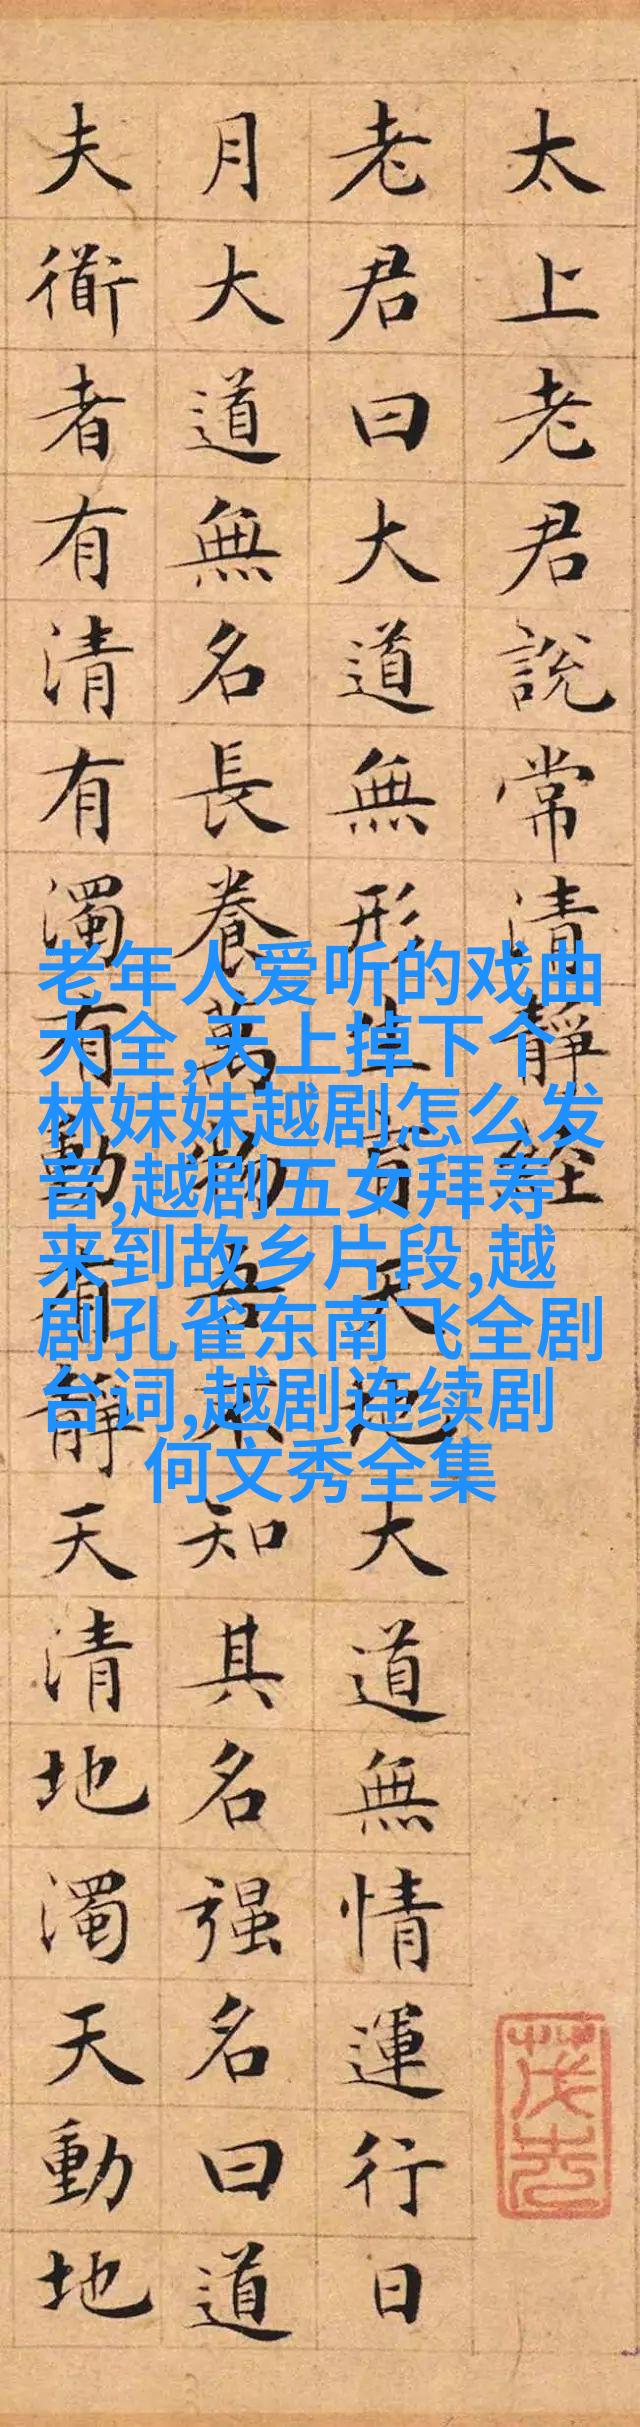 太上老君說常清靜經
老君曰大道無形生育天地大道無情運行日
月大道無名長養萬物吾不知其名强名曰道
夫衜者有清有濁有動有靜天清地濁天動地
老年人爱听的戏曲
大全,天上掉下个
林妹妹越剧怎么发
音,越剧五女拜寿
来到故乡片段,越
剧孔雀东南飞全剧
台词,越剧连续剧
何文秀全集